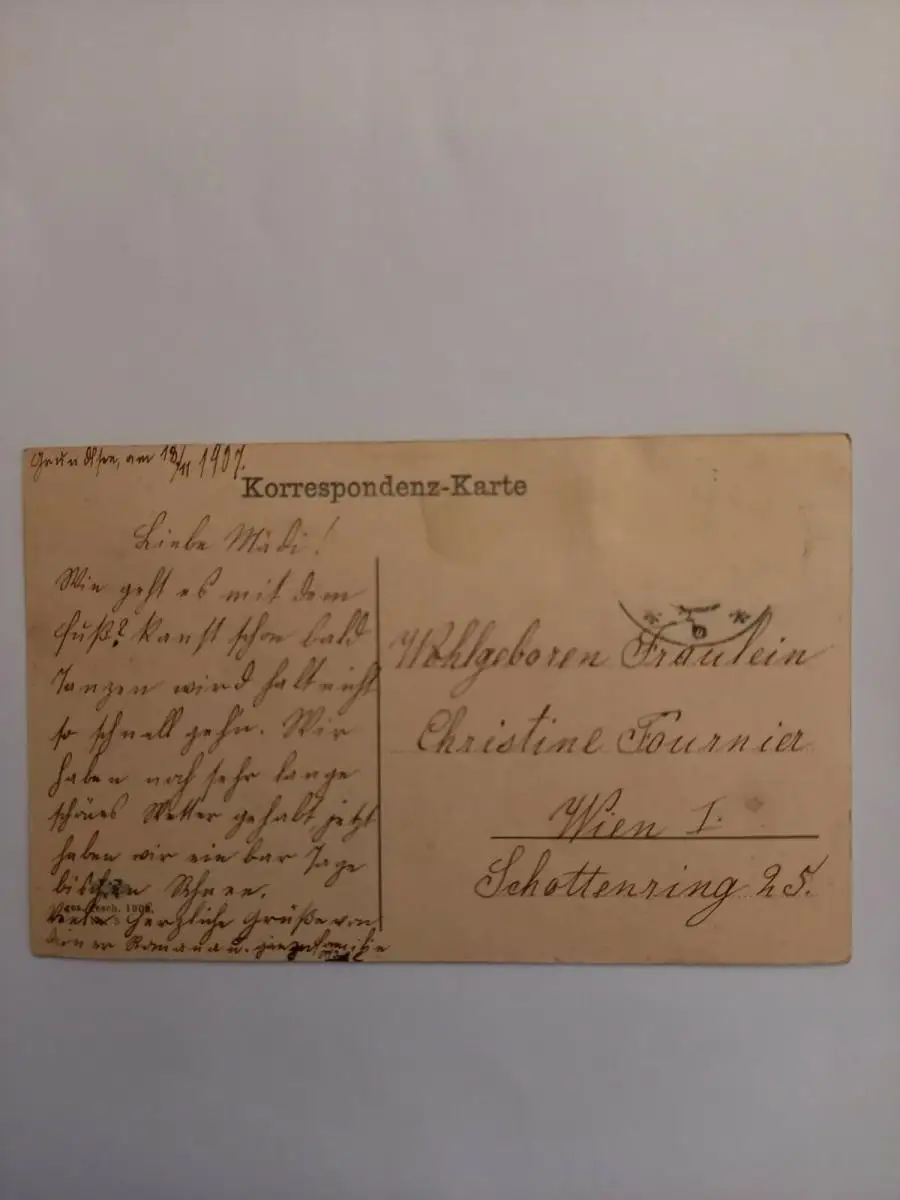 Grundlsee, am 18/11 1907.
Korrespondenz-Karte
Liebe Mädi!
Wie geht es mit dem
Fuß? kanst schon bald
Tanzen wird halt nicht
so schnell gehn. Wir
haben noch sehr lange
schönes Wetter gehabt jetzt
haben wir ein bar Tage
bischen Schnee.
Gesch. 1906.
Viele Herzliche Grüße von
deiner Romana u.
Wohlgeboren Fräulein
Christine Fournier
Wien I.
Schottenring 25.